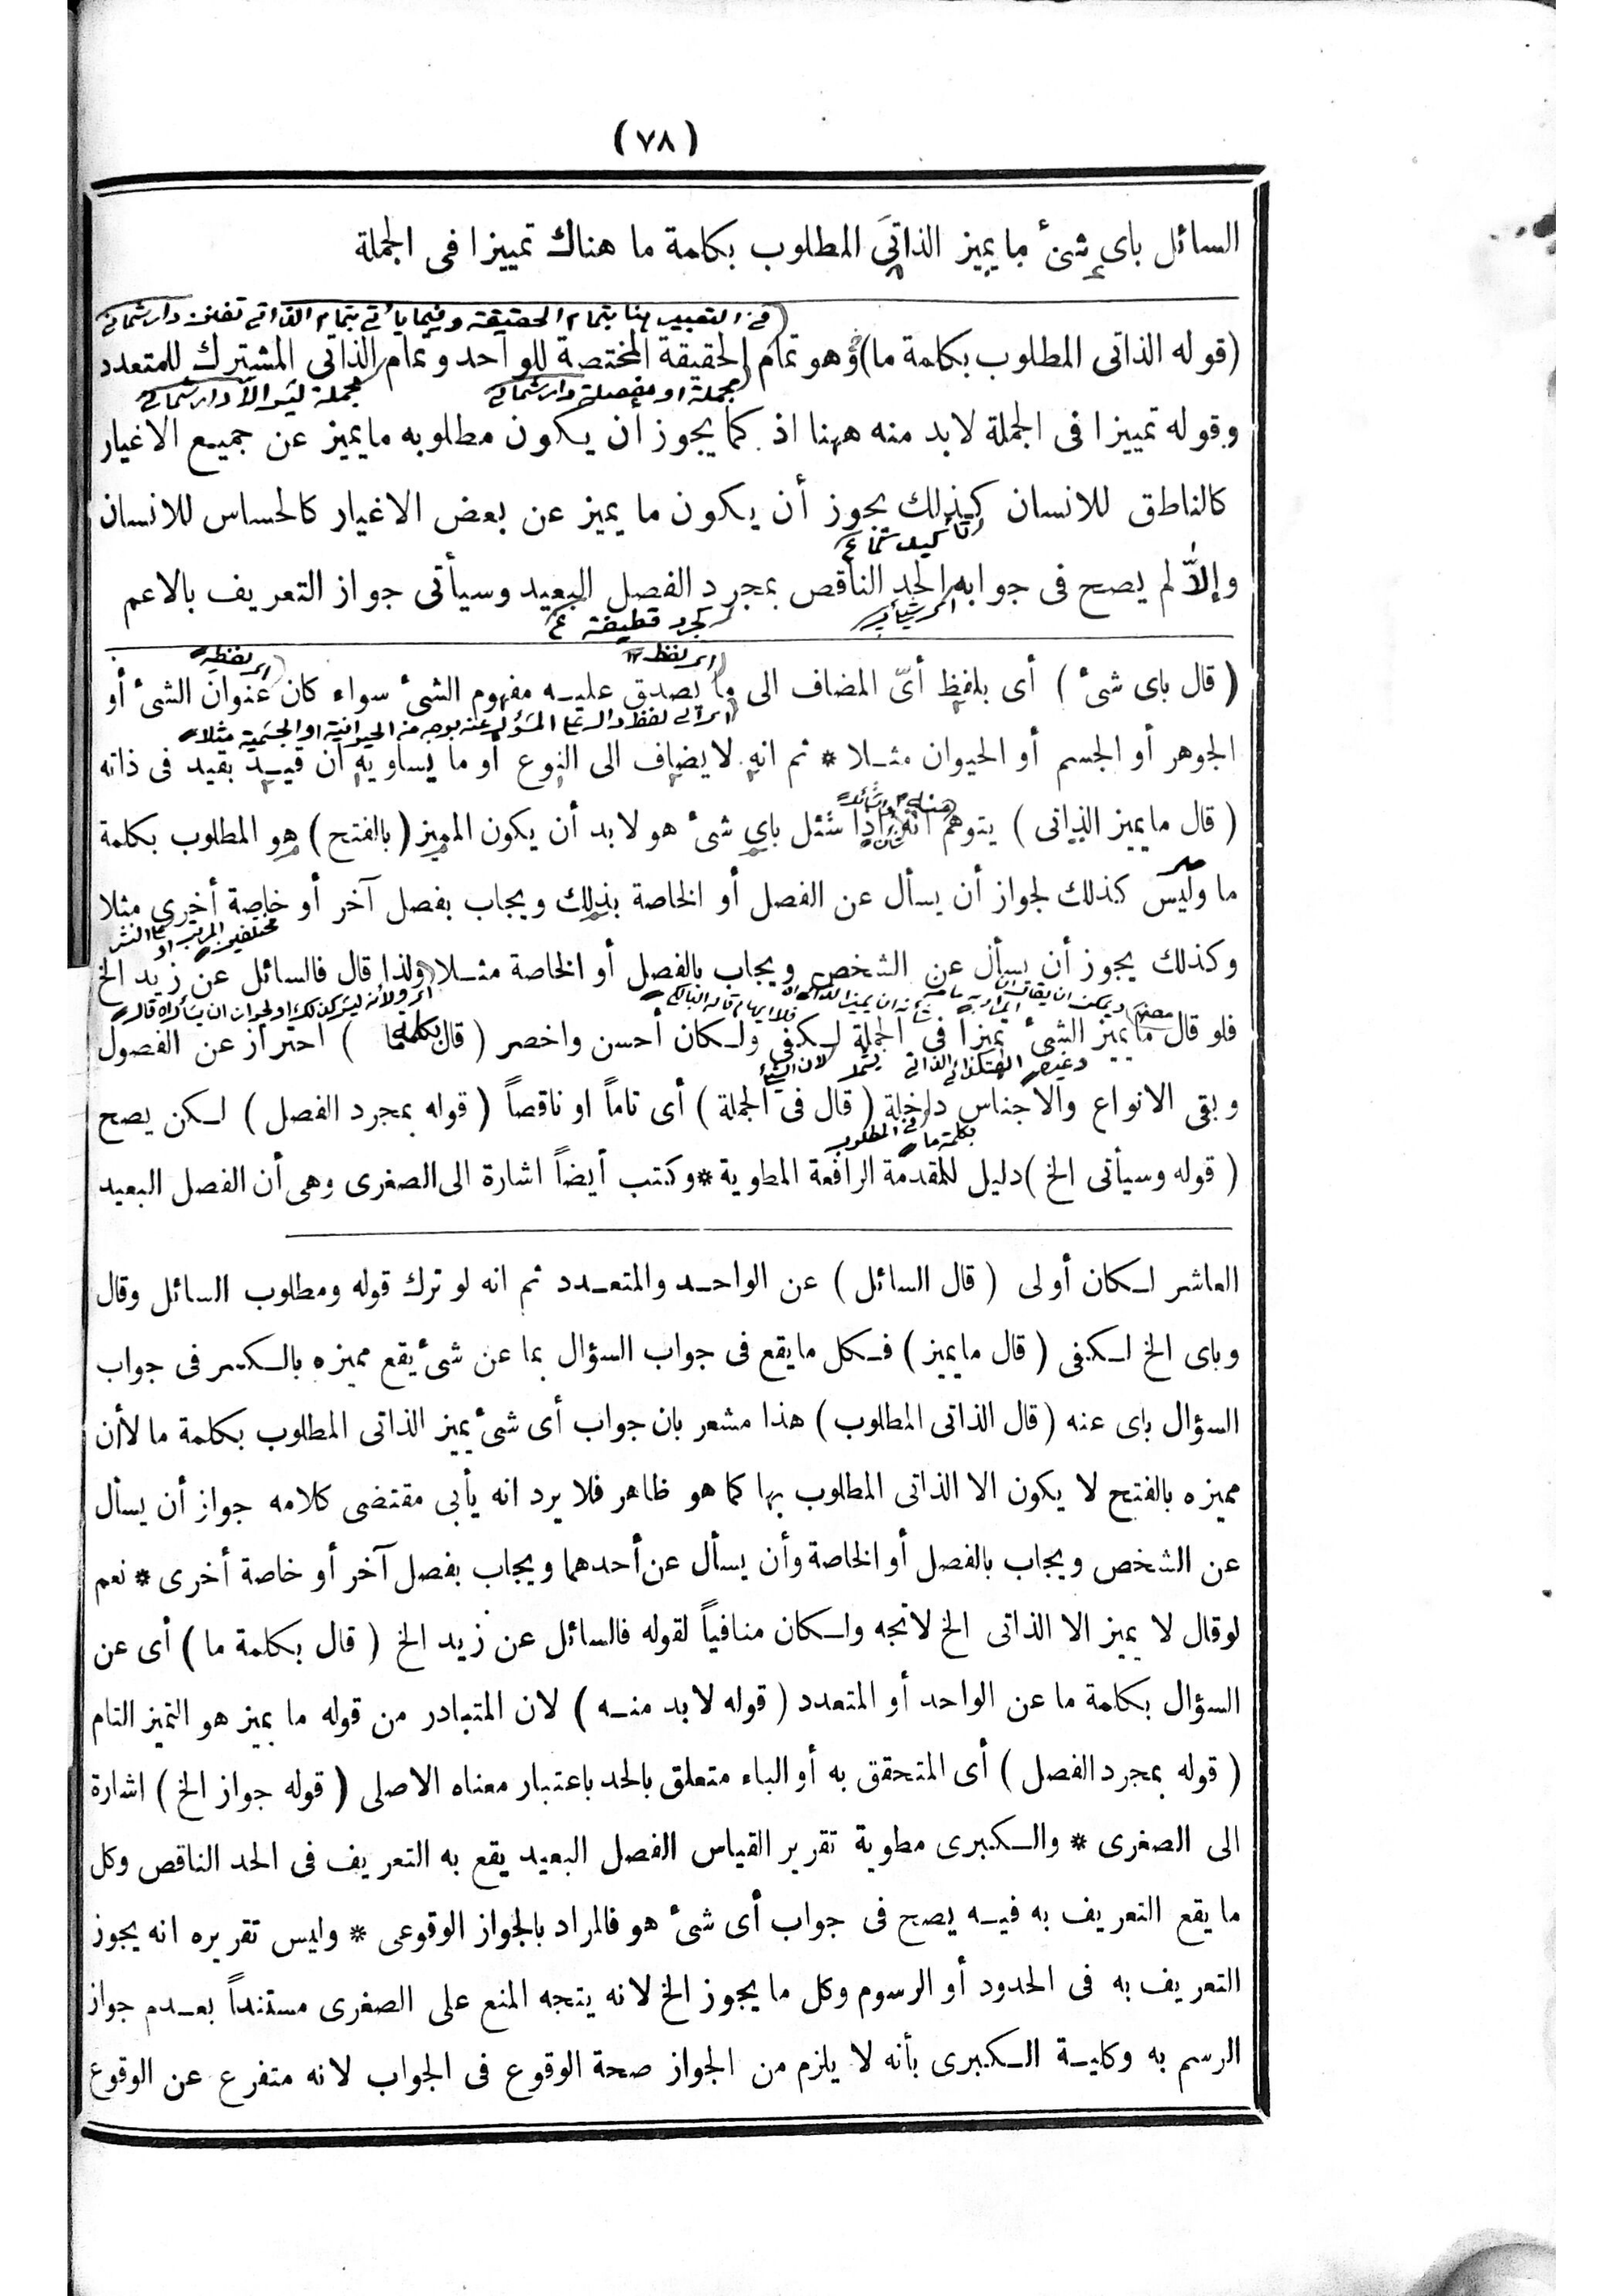 (٧٨)
السائل باى شئ ما يميز الذاتى المطلوب بكلمة ما هناك تمييزا فى الجملة
فى التعبير هنا بتمام الحقيقة وفيما يأتى بتمام الذاتى تفنن
(قوله الذاتى المطلوب بكلمة ما) وهو تمام الحقيقة المختصة للواحد وتمام الذاتى المشترك للمتعدد
مجملة او مفصلة
وقوله تمييزا فى الجملة لابد منه ههنا اذ كما يجوز أن يكون مطلوبه مايميز عن جميع الاغيار
كالناطق للانسان كذلك يجوز أن يكون ما يميز عن بعض الاغيار كالحساس للانسان
وإلاّ لم يصح فى جوابه الحد الناقص بمجرد الفصل البعيد وسيأتى جواز التعريف بالاعم
كجرد قطيفة
(قال باى شئ) أى بلفظ أىّ المضاف الى ما يصدق عليه مفهوم الشئ سواء كان عنوان الشئ أو
الجوهر أو الجسم أو الحيوان مثلا * ثم انه لايضاف الى النوع أو ما يساويه ان قيد بقيد فى ذاته
(قال مايميز الذاتى) يتوهم انه اذا سئل باى شئ هو لابد أن يكون المميز (بالفتح) هو المطلوب بكلمة
ما وليس كذلك لجواز أن يسأل عن الفصل أو الخاصة بذلك ويجاب بفصل آخر أو خاصة أخرى مثلا
وكذلك يجوز أن يسأل عن الشخص ويجاب بالفصل أو الخاصة مثلا ولذا قال فالسائل عن زيد الخ
فلو قال ما يميز الشئ تميزا فى الجملة لكفى ولكان أحسن واخصر (قال بكلمة ما) احتراز عن الفصول
وبقى الانواع والاجناس داخلة (قال فى الجملة) أى تاماً او ناقصاً (قوله بمجرد الفصل) لكن يصح
(قوله وسيأتى الخ) دليل للمقدمة الرافعة المطوية * وكتب أيضاً اشارة الى الصغرى وهى أن الفصل البعيد
العاشر لكان أولى (قال السائل) عن الواحد والمتعدد ثم انه لو ترك قوله ومطلوب السائل وقال
وباى الخ لكفى (قال مايميز) فكل مايقع فى جواب السؤال بما عن شئ يقع مميزه بالكسر فى جواب
السؤال باى عنه (قال الذاتى المطلوب) هذا مشعر بان جواب أى شئ يميز الذاتى المطلوب بكلمة ما لاأن
مميزه بالفتح لا يكون الا الذاتى المطلوب بها كما هو ظاهر فلا يرد انه يأبى مقتضى كلامه جواز أن يسأل
عن الشخص ويجاب بالفصل أو الخاصة وأن يسأل عن أحدهما ويجاب بفصل آخر أو خاصة أخرى * نعم
لوقال لا يميز الا الذاتى الخ لاتجه ولكان منافياً لقوله فالسائل عن زيد الخ (قال بكلمة ما) أى عن
السؤال بكلمة ما عن الواحد أو المتعدد (قوله لا بد منه) لان المتبادر من قوله ما يميز هو التميز التام
(قوله بمجرد الفصل) أى المتحقق به أو الباء متعلق بالحد باعتبار معناه الاصلى (قوله جواز الخ) اشارة
الى الصغرى * والكبرى مطوية تقرير القياس الفصل البعيد يقع به التعريف فى الحد الناقص وكل
ما يقع التعريف به فيه يصح فى جواب أى شئ هو فالمراد بالجواز الوقوعى * وليس تقريره انه يجوز
التعريف به فى الحدود أو الرسوم وكل ما يجوز الخ لانه يتجه المنع على الصغرى مستنداً بعدم جواز
الرسم به وكلية الكبرى بأنه لا يلزم من الجواز صحة الوقوع فى الجواب لانه متفرع عن الوقوع